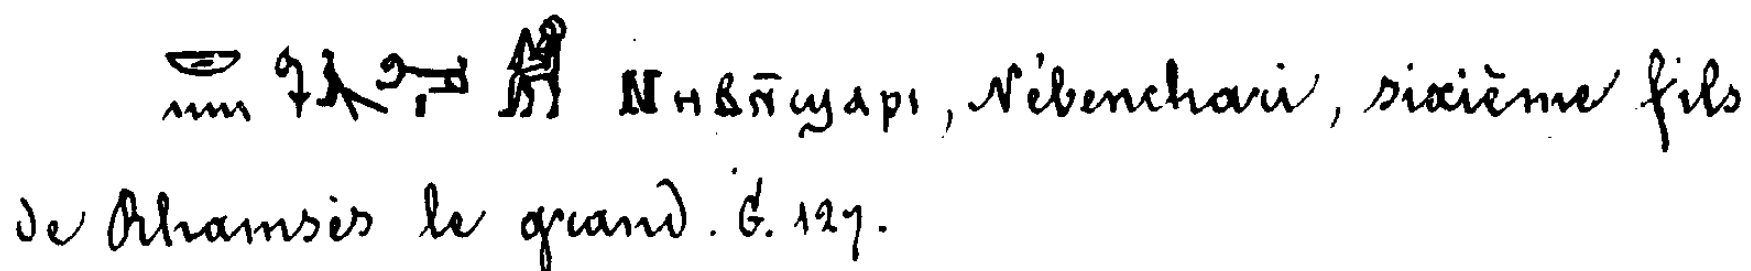 Ⲛⲏⲃⲛ̄ϣⲁⲣⲓ, Nébenchari, sixième fils
de Rhamsès le grand. G. 127.